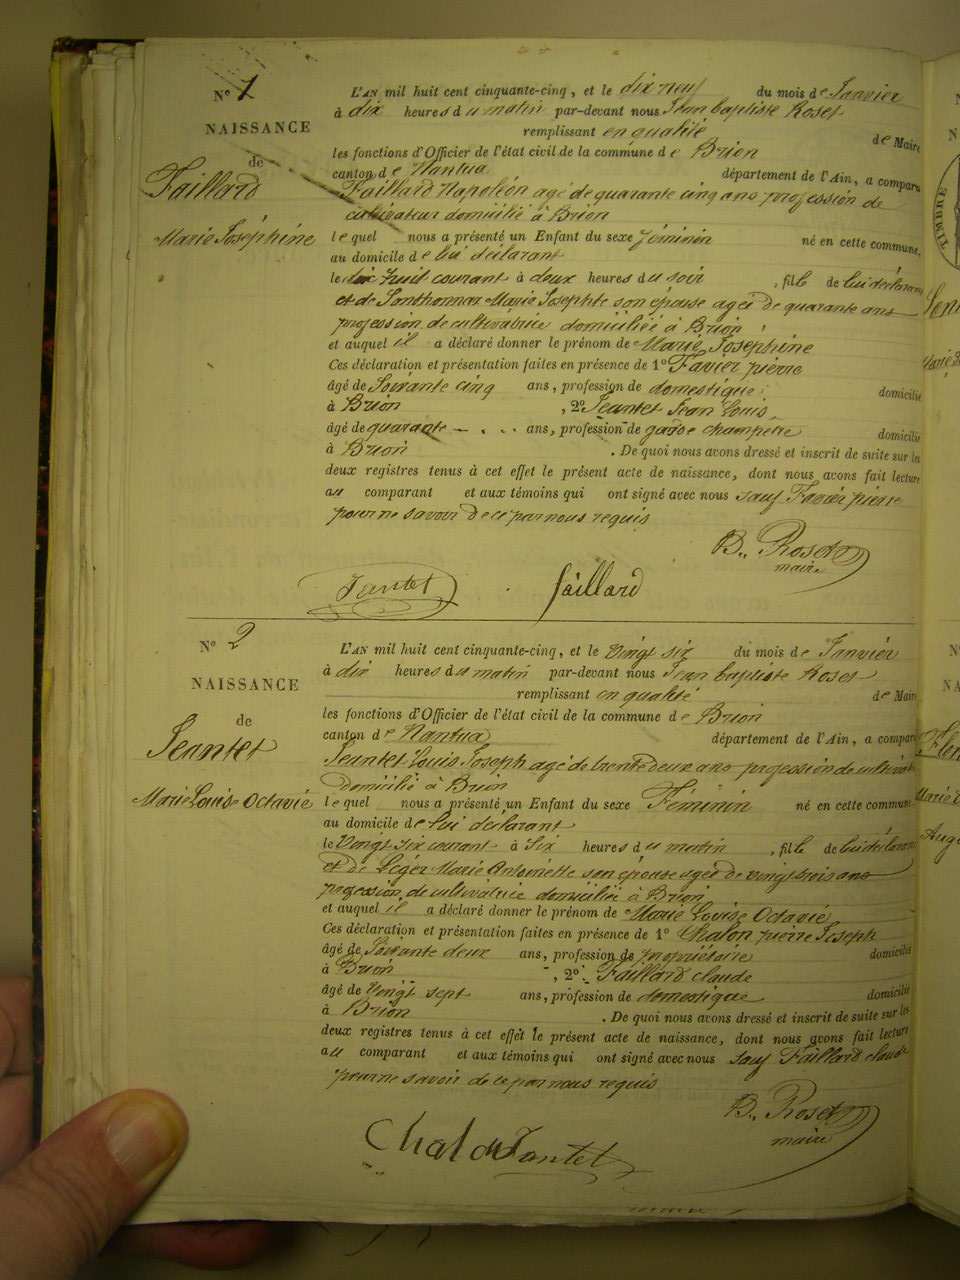 N° 1
NAISSANCE
de
Faillard
Marie Joséphine
L'AN mil huit cent cinquante-cinq, et le dix neuf du mois de Janvier
à dix heures du matin par-devant nous Jean baptiste Roset
remplissant en qualité de Maire
les fonctions d'Officier de l'état civil de la commune de Brion
canton de Nantua département de l'Ain, a comparu
Faillard Napoléon agé de quarante cinq ans profession de
cultivateur domicilié à Brion
lequel nous a présenté un Enfant du sexe féminin né en cette commune,
au domicile de lui déclarant
le dix huit courant à deux heures du soir, fille de lui déclarant
et de Sonthonnax Marie Josephte son épouse agée de quarante ans
profession de cultivatrice domiciliée à Brion
et auquel il a déclaré donner le prénom de Marie Joséphine
Ces déclaration et présentation faites en présence de 1° Favier pierre
âgé de Soixante cinq ans, profession de domestique domicilié
à Brion, 2° Jeantet Jean Louis
âgé de quarante ans, profession de garde champetre domicilié
à Brion. De quoi nous avons dressé et inscrit de suite sur la
deux registres tenus à cet effet le présent acte de naissance, dont nous avons fait lecture
au comparant et aux témoins qui ont signé avec nous sauf Favier pierre
pour ne savoir de ce par nous requis
B. Roset
maire
Jantet faillard
N° 2
NAISSANCE
de
Jeantet
Marie Louise Octavie
L'AN mil huit cent cinquante-cinq, et le vingt six du mois de Janvier
à dix heures du matin par-devant nous Jean baptiste Roset
remplissant en qualité de Maire
les fonctions d'Officier de l'état civil de la commune de Brion
canton de Nantua département de l'Ain, a comparu
Jeantet Louis Joseph agé de trente deux ans profession de cultivat
domicilié à Brion
lequel nous a présenté un Enfant du sexe Féminin né en cette commune
au domicile de lui déclarant
le Vingt six courant à Six heures du matin, fille de lui déclarant
et de Léger Marie Antoinette son épouse agée de vingt trois ans
profession de cultivatrice domiciliée à Brion
et auquel il a déclaré donner le prénom de Marie Louise Octavie
Ces déclaration et présentation faites en présence de 1° Chalon pierre Joseph
âgé de Soixante deux ans, profession de propriétaire domicilié
à Brion, 2° Faillard claude
âgé de Vingt sept ans, profession de domestique domicilié
à Brion. De quoi nous avons dressé et inscrit de suite sur les
deux registres tenus à cet effet le présent acte de naissance, dont nous avons fait lecture
au comparant et aux témoins qui ont signé avec nous sauf Faillard claude
pour ne savoir de ce par nous requis
B. Roset
maire
Jantet
TIMBRE